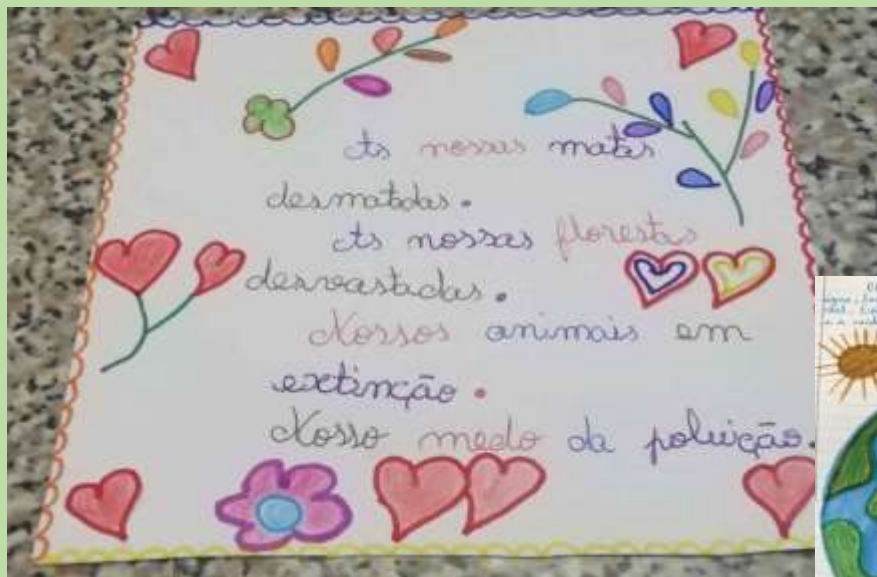 As nossas matas
desmatadas.
As nossas florestas
desvastadas.
Nossos animais em
extinção.
Nosso medo da poluição.